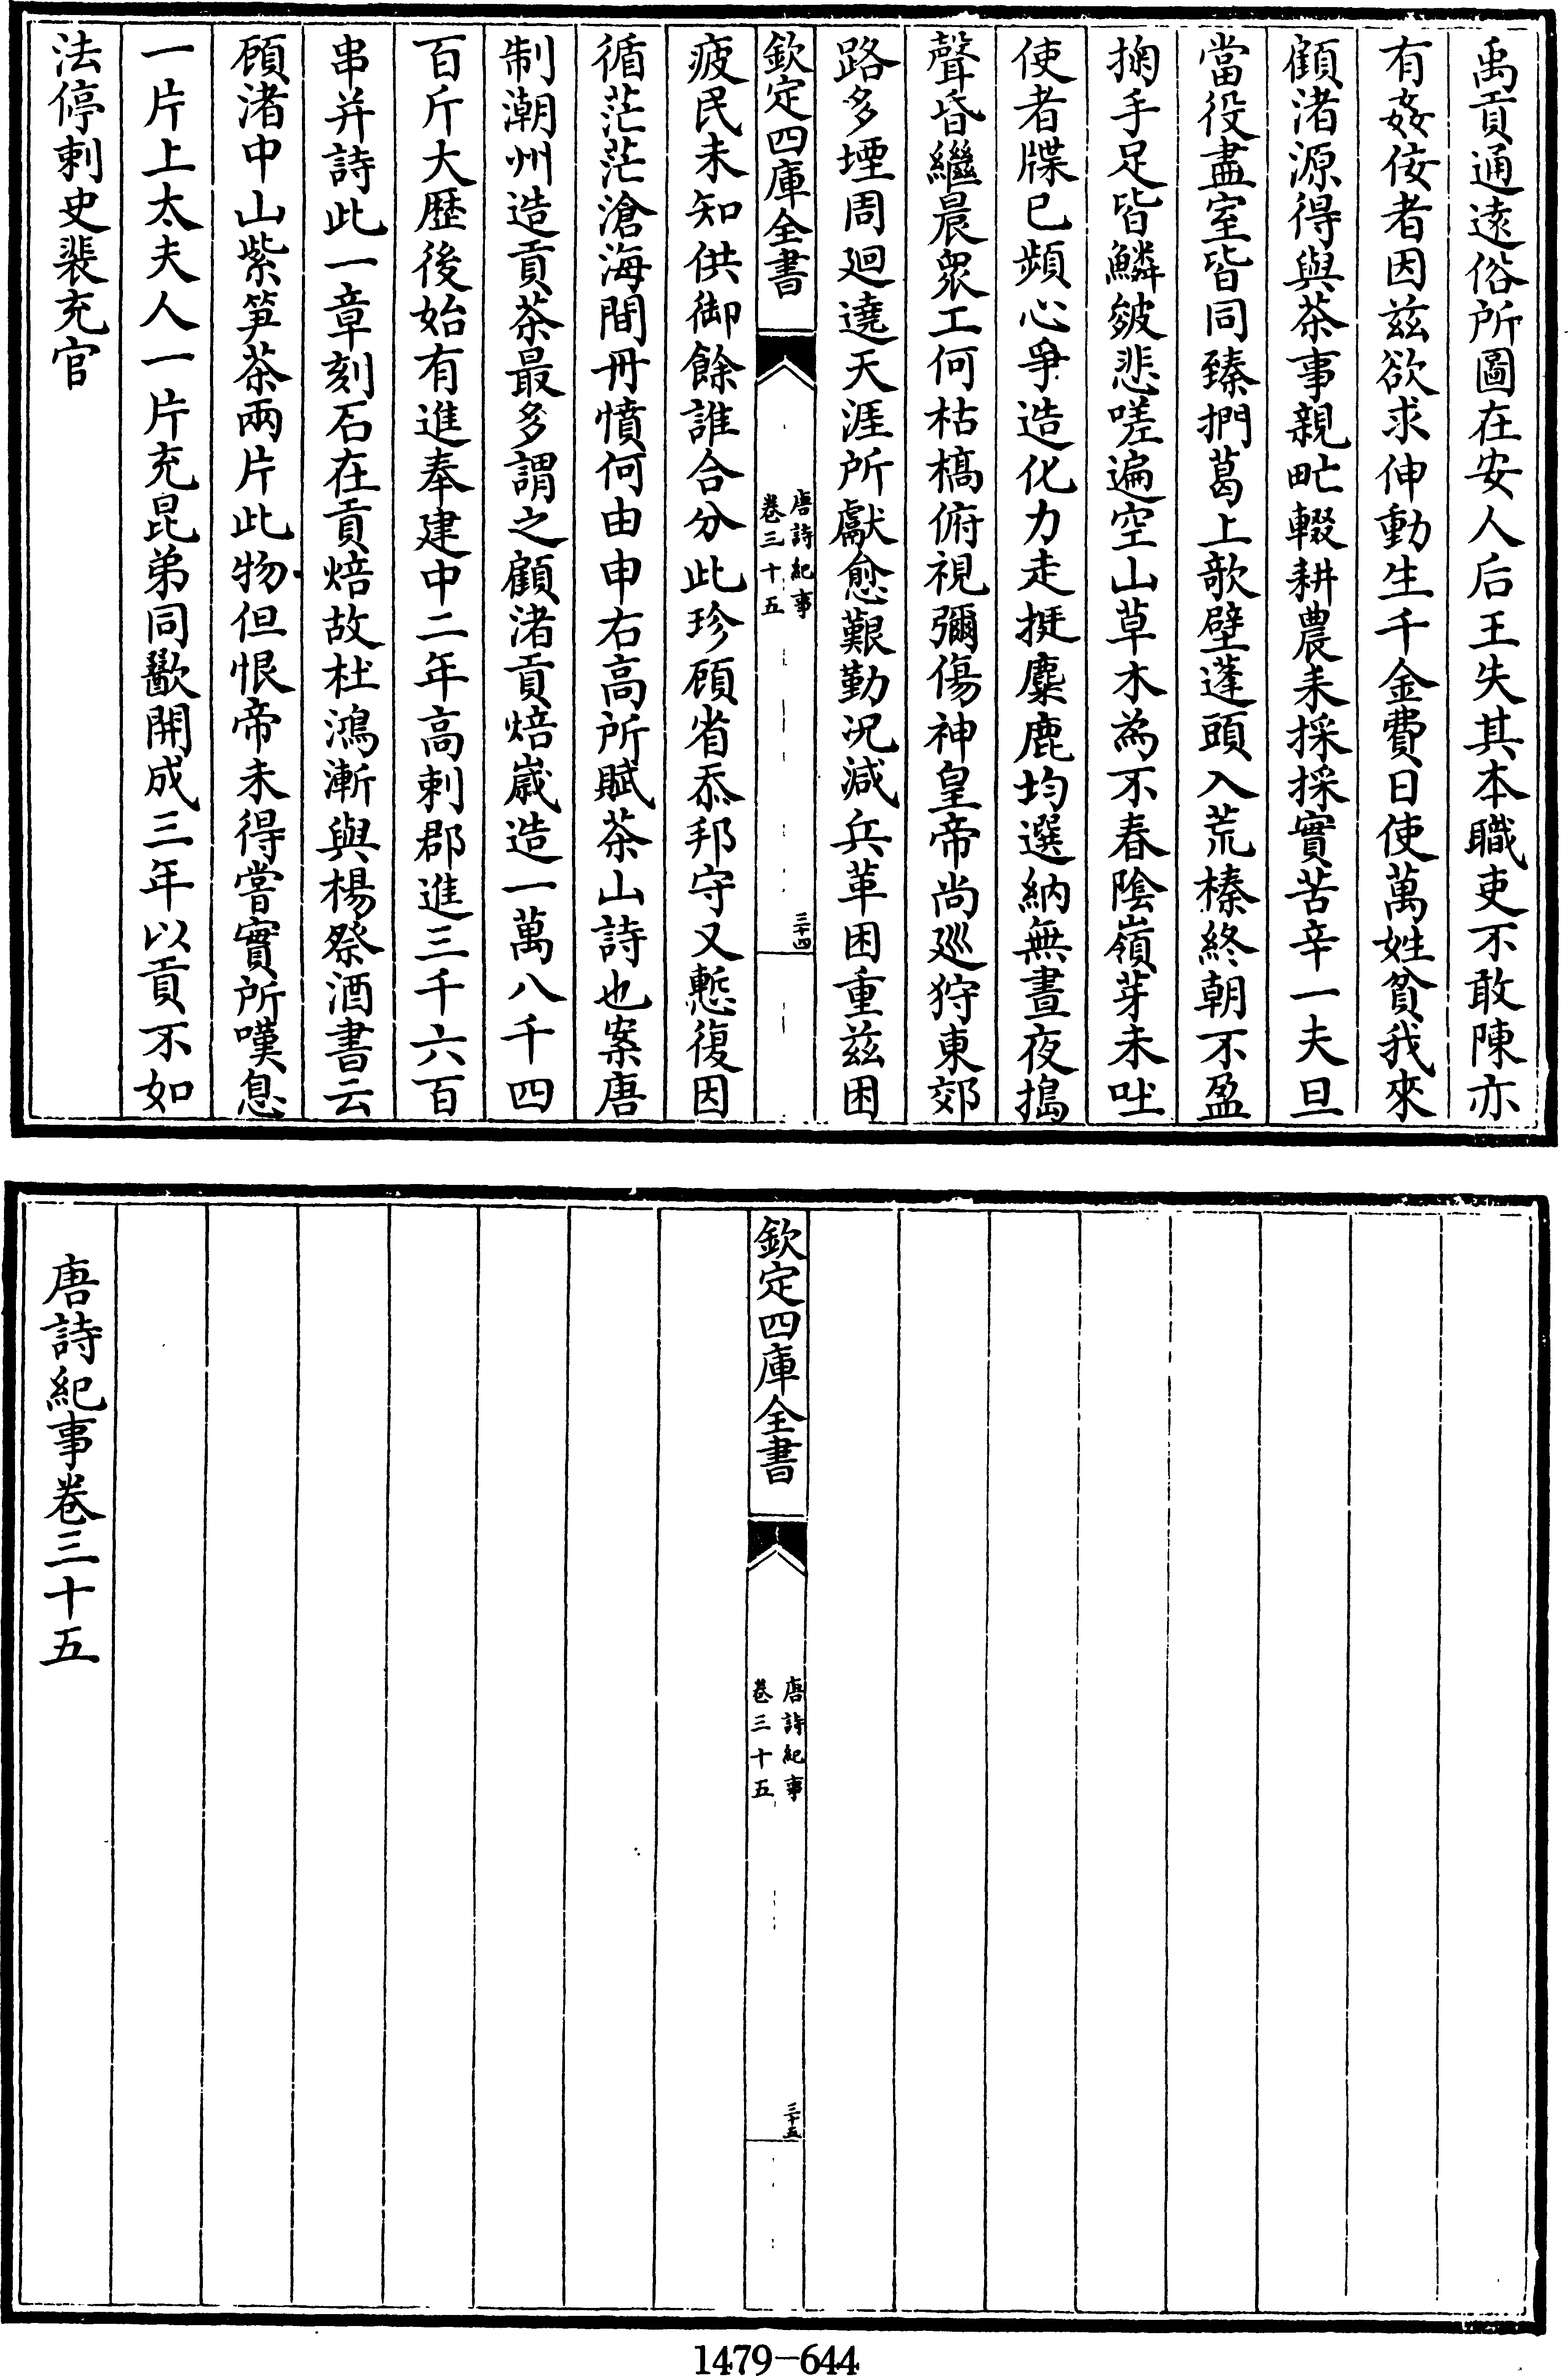 禹貢通逺俗所圖在安人后王失其本職吏不敢陳亦
有姦佞者因兹欲求伸動生千金費日使萬姓貧我來
顧渚源得與茶事親甿輟耕農耒採採實苦辛一夫旦
當役盡室皆同臻捫葛上欹壁蓬頭入荒榛終朝不盈
掬手足皆鱗皴悲嗟遍空山草木為不春隂嶺芽未吐
使者牒已頻心爭造化力走挺麋鹿均選納無晝夜搗
聲昏繼晨衆工何枯槁俯視彌傷神皇帝尚廵狩東郊
路多堙周廻遶天涯所獻愈艱勤况減兵革困重兹困
欽定四庫全書
唐詩紀事
卷三十五
三十四
疲民未知供御餘誰合分此珍顧省忝邦守又慙復因
循茫茫滄海間丹憤何由申右高所賦茶山詩也案唐
制潮州造貢茶最多謂之顧渚貢焙嵗造一萬八千四
百斤大歴後始有進奉建中二年高刺郡進三千六百
串并詩此一章刻石在貢焙故杜鴻漸與楊祭酒書云
顧渚中山紫笋茶兩片此物但恨帝未得嘗實所嘆息
一片上太夫人一片充昆弟同歠開成三年以貢不如
法停刺史裴充官
欽定四庫全書
唐詩紀事
卷三十五
三十五
唐詩紀事卷三十五
1479-644